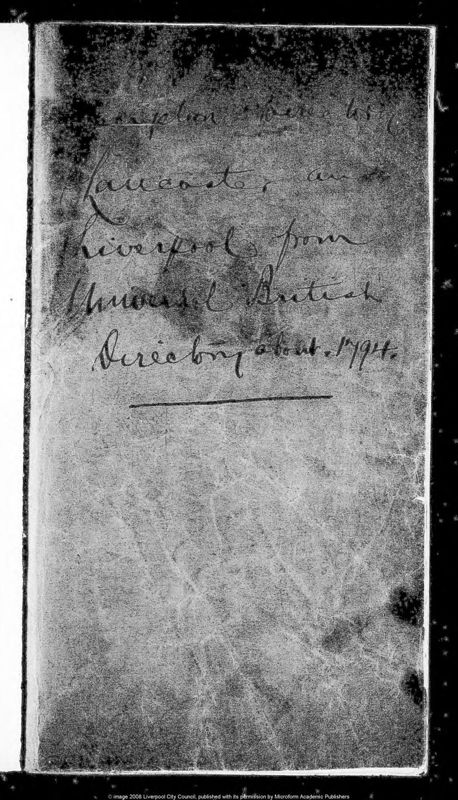 Lancaster, and
Liverpool, from
Universal British
Directory about. 1794.
© image 2008 Liverpool City Council, published with its permission by Microform Academic Publishers